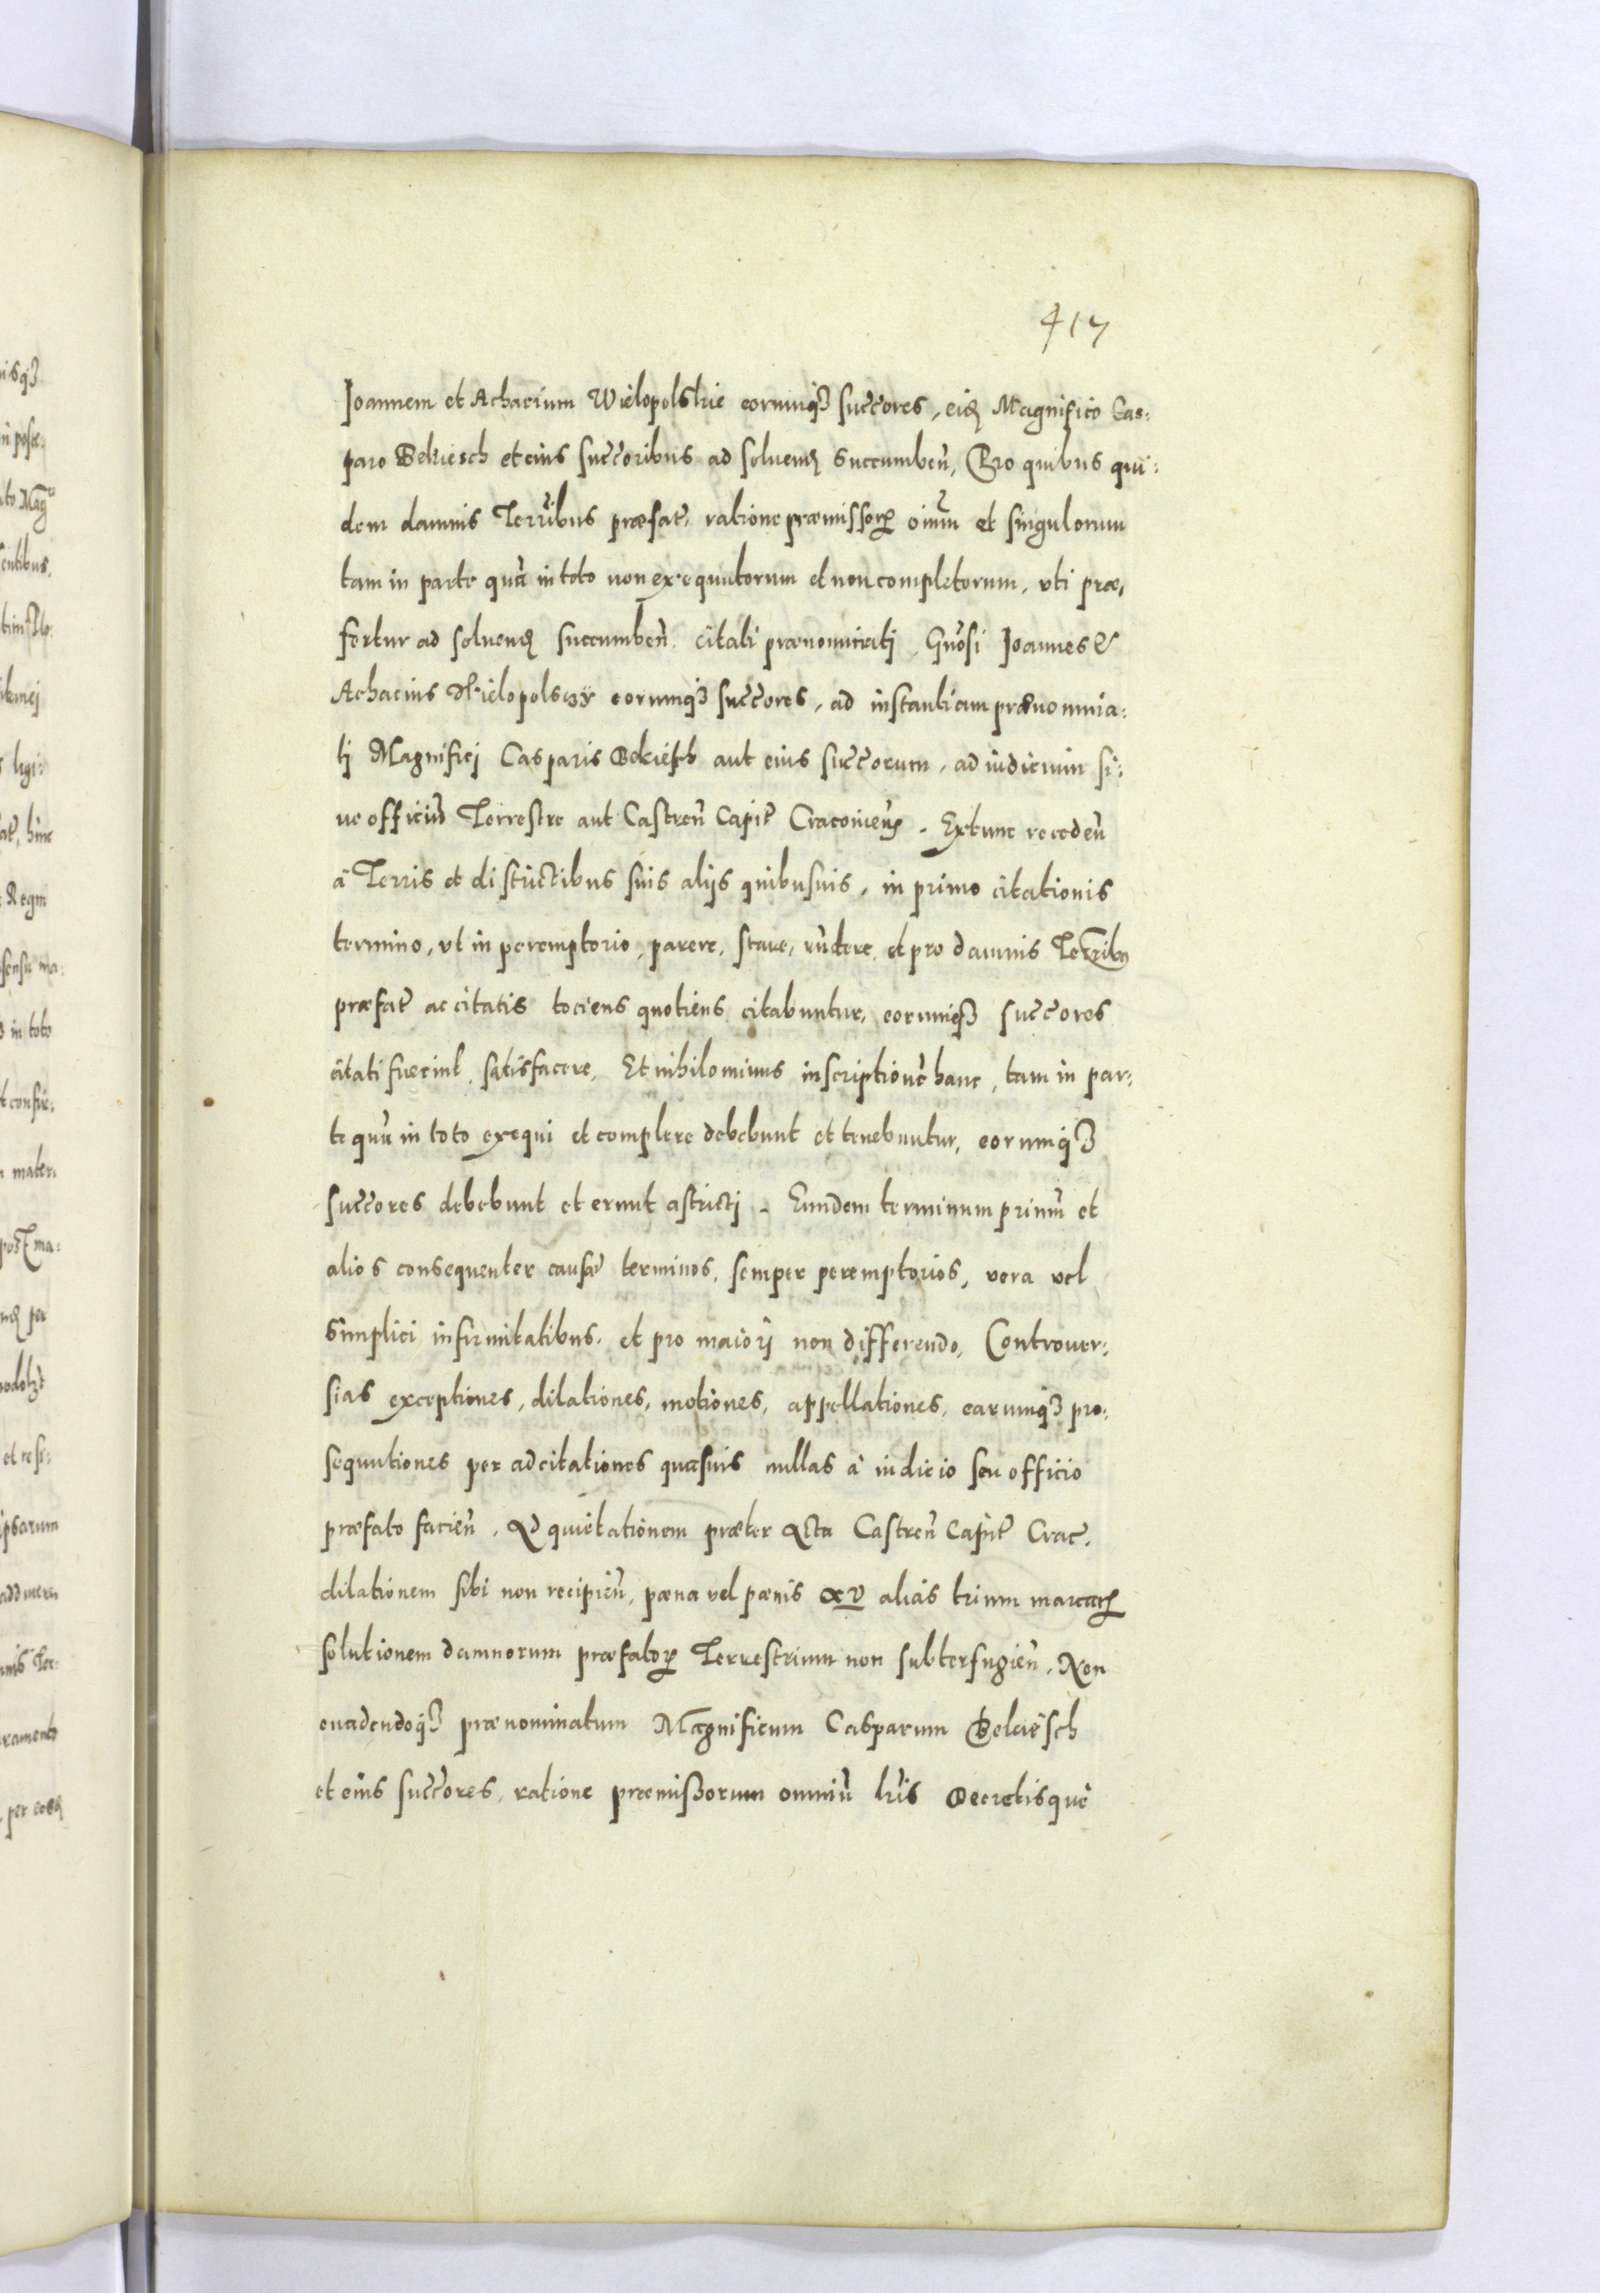 417
Joannem et Achacium Wielopolskie eorumq₃ succores, eid Magnifico Cas:
paro Bekiesch et eius succoribus ad soluend Succumben̄, Pro quibus qui:
dem damnis Terribus præfat, ratione præmissoꝝ oim̄ et singulorum
tam in parte qua in toto non exequutorum et non completorum, vti præ,
fertur ad soluend succumben̄ citati prænominati, Gn̄osi Joannes &
Achacius Wielopolscÿ eorumq₃ succores, ad instantiam prænomina:
tj Magnificj Casparis Bekiesch aut eius succorum, ad iudicium si:
ue officiū Terrestre aut Castren̄ Capit Cracouien̄. Extunc receden̄
à Terris et districtibus suis alijs quibusuis, in primo citationis
termino, vt in peremptorio, parere, stare, rn̄dere et pro damnis Terribu
præfat ac citatis tociens quotiens citabuntur, eorumq₃ succores
citati fuerint, satisfacere, Et nihilominus inscriptionē hanc, tam in par:
te quā in toto exequi et complere debebunt et tenebuntur, eorumq₃
succores debebunt et erunt astricti. Eundem terminum primū et
alios consequenter causæ terminos, semper peremptorios, vera vel
simplici infirmitatibus, et pro maiorj non differendo, Controuer:
sias exceptiones, dilationes, motiones, appellationes, earumq₃ pro:
sequutiones per adcitationes quasuis nullas à iudicio seu officio
præfato facien̄. Ad quietationem præter Acta Castren̄ Capit Crac.
dilationem sibi non recipien̄, pæna vel pænis XV alias trium marcarꝝ
solutionem damnorum præfatoꝝ Terrestrium non subterfugien̄. Non
euadendoq₃ prænominatum Magnificum Casparum Bekiesch
et eius succores, ratione præmissorum omniū lris Decretisque